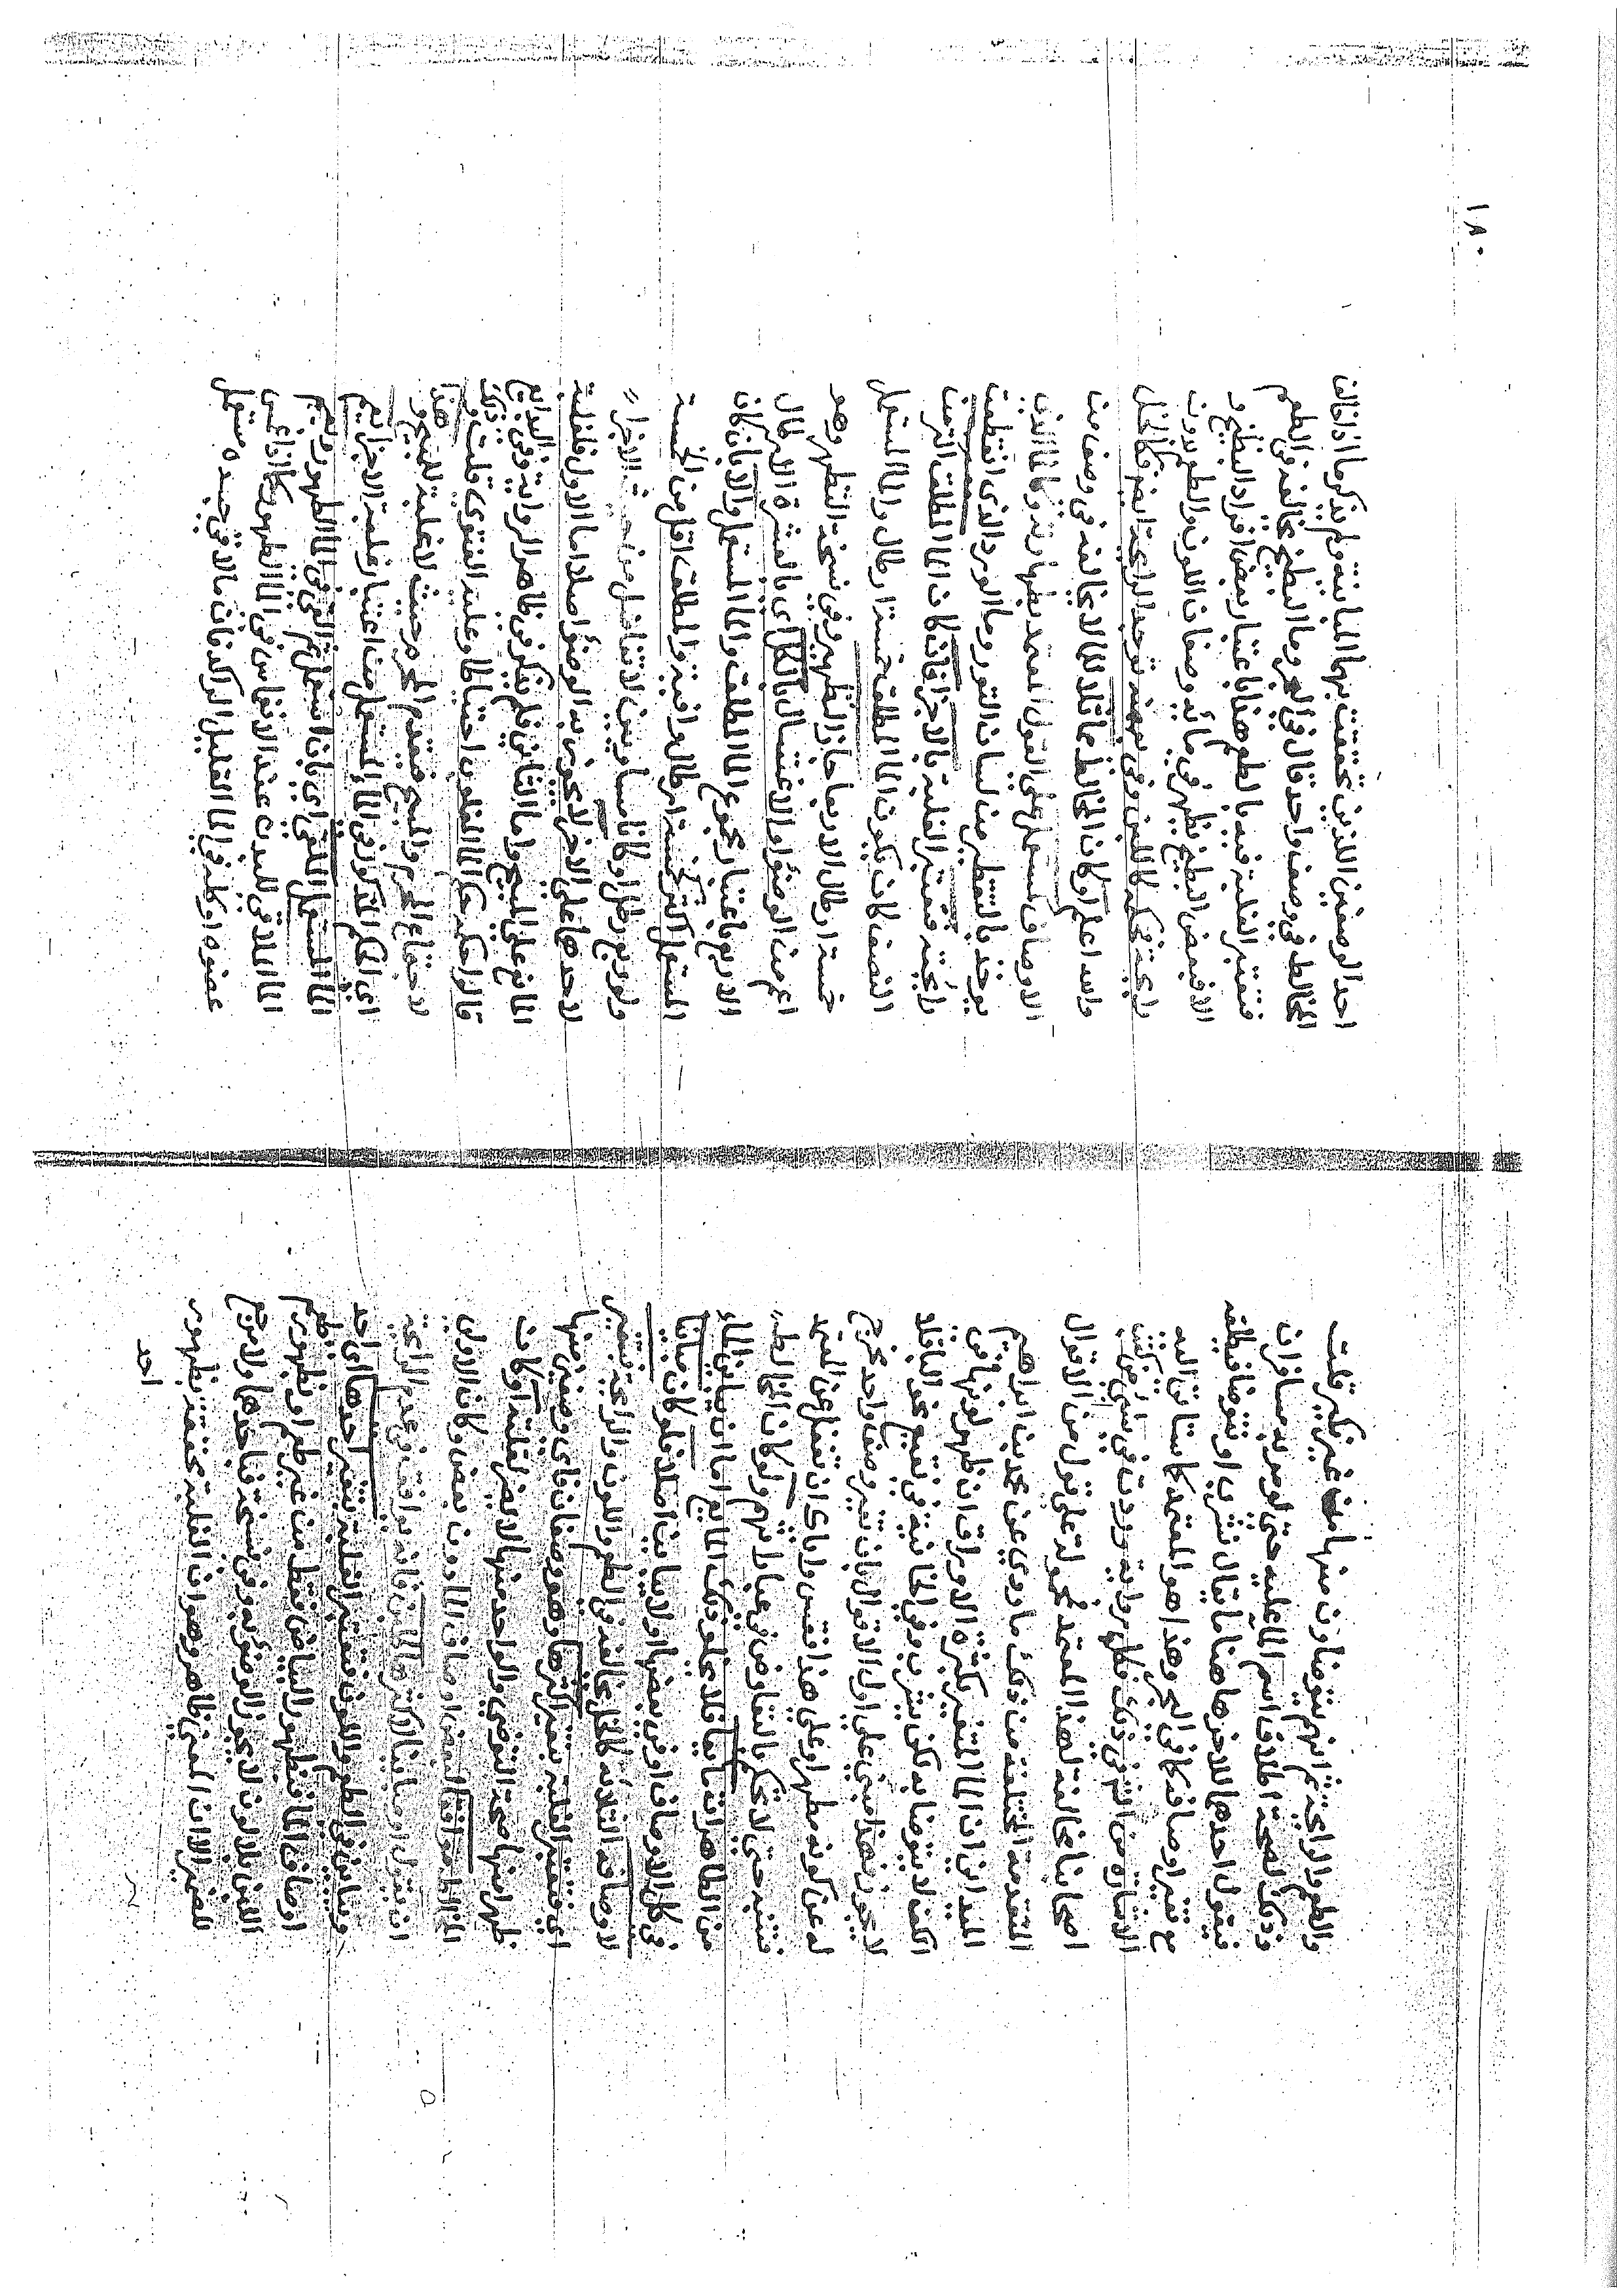 والطعم والرايحة ثم انهم يتوضاون منها من غير نكير قلت
وذلك لصحة اطلاق اسم الماء عليه حتى لو مر به مسافران
فيقول احدهما للاخر هاهنا ما تعال نشرب او نتوضا فيطلقه
مع تغير اوصافه كما في البحر وهذا هو المعتمد كما سياتي اليه
الاشارة من الشرع في ذلك فكل رواية وردت في شي من كتب
اصحابنا مخالفة لهذا المعتمد محمولة على قول من الاقوال
المتقدمة المختلفة من ذلك ما روي عن محمد بن ابراهيم
الميداني ان الماء المتغير بكثرة الاوراق ان ظهر لونها في
الكف لا يتوضا به لكن يشرب وفي الخانية في نقيع نحو الباقلا
لا يجوز فهذا مبني على اول الاقوال بان تغير وصف واحد مخرج
له عن كونه مطهرا وعلى هذا فقس واياك ان تغفل عن القيد
فتشتبه حتى لا تحكم بالتعارض في عباراتهم ولو كان المخالط
من الطاهرات مايعا فلا يخلو ذلك المايع اما ان يباين الماء
في كل الاوصاف او في بعضها او لا يباين اصلا فلو كان مباينا
لاوصافه الثلاثة كالخل يخالفه في الطعم واللون والرايحة
اي فتعتبر الغلبة بتغير اكثرها وهو وصفان فاي وصفين منها
ظهر امنعا صحة التوضي والواحد منها لا يضر لقلته او كان
المخالط موافقا لبعض اوصاف الماء دون بعض وكان الاولى
ان يقول او مباينا لاكثرها كاللبن فانه يوافق في عدم الرايحة
ومباين في الطعم واللون فتعتبر الغلبة بتغير احدها اي احد
اوصاف الماء فبظهور البياض فقط من غير طعم او بظهور طعم
اللبن بلا لون لا يجوز الوضوء به وفي نسخة فباحدها ولا مرجع
للضمير الا ان المعنى ظاهر وهو ان الغلبة متحققة بظهور
احد
١٨٠
احد الوصفين اللذين تحققت بهما المباينة ولم يذكر ما اذا كان
المخالط في وصف واحد قال في البحر وما البطيخ يخالفه في الطعم
فتعتبر الغلبة فيه بالطعم هذا باعتبار بعض افراد البطيخ و
الا فبعض البطيخ يظهر في مائه وصفان اللون والطعم بدون
رايحة فحكمه كاللبن وفي بعضه توجد الرايحة ايضا فكالخل
والله اعلم او كان المخالط مماثلا للماء لا يخالفه في وصف من
الاوصاف كمستعمل على القول المعتمد بطهارته وكالماء الذي
يوخذ بالتقطير من لسان الثور وماء الورد الذي انقطعت
رايحته فتعتبر الغلبة بالاجزا فان كان الماء المطلق اكثر من
النصف كان يكون الماء المطلق خمسة ارطال والماء المستعمل
خمسة ارطال الا ربعا جاز التطهير وفي نسخة التطهر وهو
اعم من الوضوء والاغتسال بالكل اي بالعشرة الارطال
الا ربع باعتبار مجموع الماء المطلق والماء المستعمل والا بان كان
المستعمل اكثر خمسة ارطال وافية والمطلق اقل من الخمسة
ولو بربع رطل او كانا متساويين لا تفاضل من حيث الاجزاء
لاحدهما على الاخر لا يجوز به الوضوء اصلا اما الاول فلغلبة
المانع على المبيح واما الثاني فلم يذكر في ظاهر الرواية وفي البدايع
قالوا حكمه حكم الماء المغلوب احتياطا وعليه الفتوى قلت وذلك
لاجتماع المحرم والمبيح فيقدم المحرم حيث لا غلبة للمبيح وهذا
اي الحكم المذكور في الماء المستعمل من اعتبار غلبة الاجزا يعم
الماء المستعمل الملقى اي بان استعمل ثم القي في الماء الطهور ويعم
الماء الملاقي للبدن عند الانغماس في الماء الطهور كما اذا غمس
عضوه او كله في الماء القليل الراكد فان ما لاقى جسده مستعمل